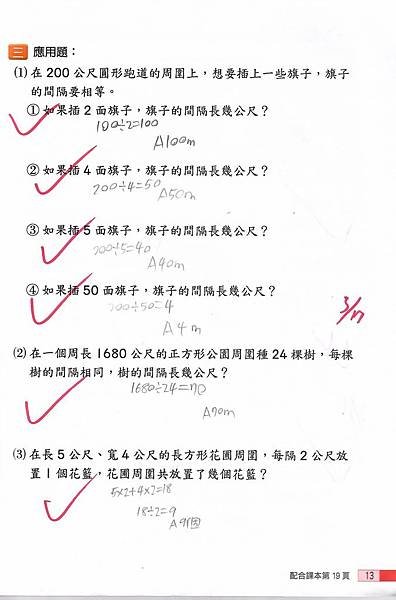 三 應用題：
(1) 在 200 公尺圓形跑道的周圍上，想要插上一些旗子，旗子
的間隔要相等。
① 如果插 2 面旗子，旗子的間隔長幾公尺？
100÷2=100
A100m
② 如果插 4 面旗子，旗子的間隔長幾公尺？
200÷4=50
A50m
③ 如果插 5 面旗子，旗子的間隔長幾公尺？
200÷5=40
A40m
④ 如果插 50 面旗子，旗子的間隔長幾公尺？
200÷50=4
A4m
3/17
(2) 在一個周長 1680 公尺的正方形公園周圍種 24 棵樹，每棵
樹的間隔相同，樹的間隔長幾公尺？
1680÷24=70
A70m
(3) 在長 5 公尺、寬 4 公尺的長方形花圃周圍，每隔 2 公尺放
置 1 個花籃，花圃周圍共放置了幾個花籃？
5×2+4×2=18
18÷2=9
A9個
配合課本第 19 頁 13